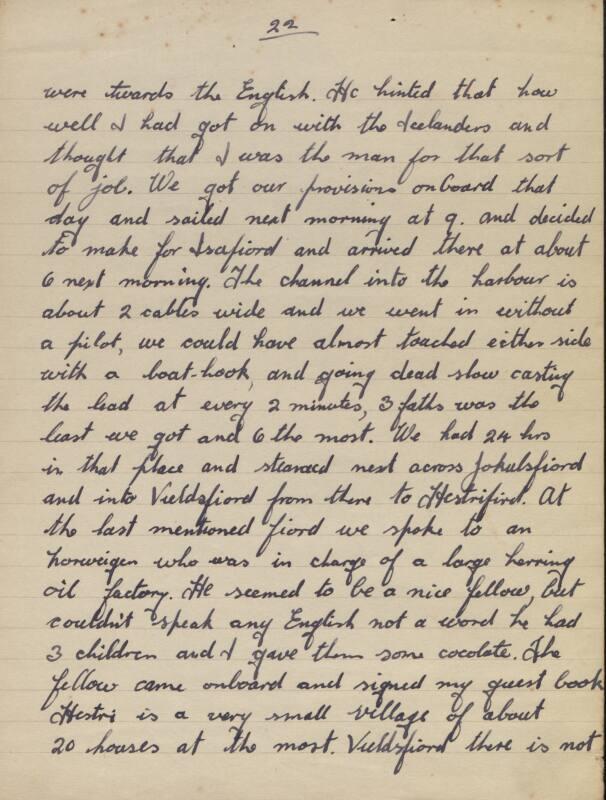 22
were twards the English. He hinted that how
well I had got on with the Icelanders and
thought that I was the man for that sort
of job. We got our provisions onboard that
day and sailed next morning at 9. and decided
to make for Isafiord and arrived there at about
6 next morning. The channel into the harbour is
about 2 cables wide and we went in without
a pilot, we could have almost touched either side
with a boat-hook, and going dead slow casting
the lead at every 2 minutes, 3 faths was the
least we got and 6 the most. We had 24 hrs
in that place and steamed next across Jokulsfiord
and into Vieldsfiord from there to Hestrifird. At
the last mentioned fiord we spoke to an
norweigen who was in charge of a large herring
oil factory. He seemed to be a nice fellow, but
couldn't speak any English not a word he had
3 children and I gave them some cocolate. The
fellow came onboard and signed my guest book
Hestri is a very small village of about
20 houses at the most. Vieldsfiord there is not